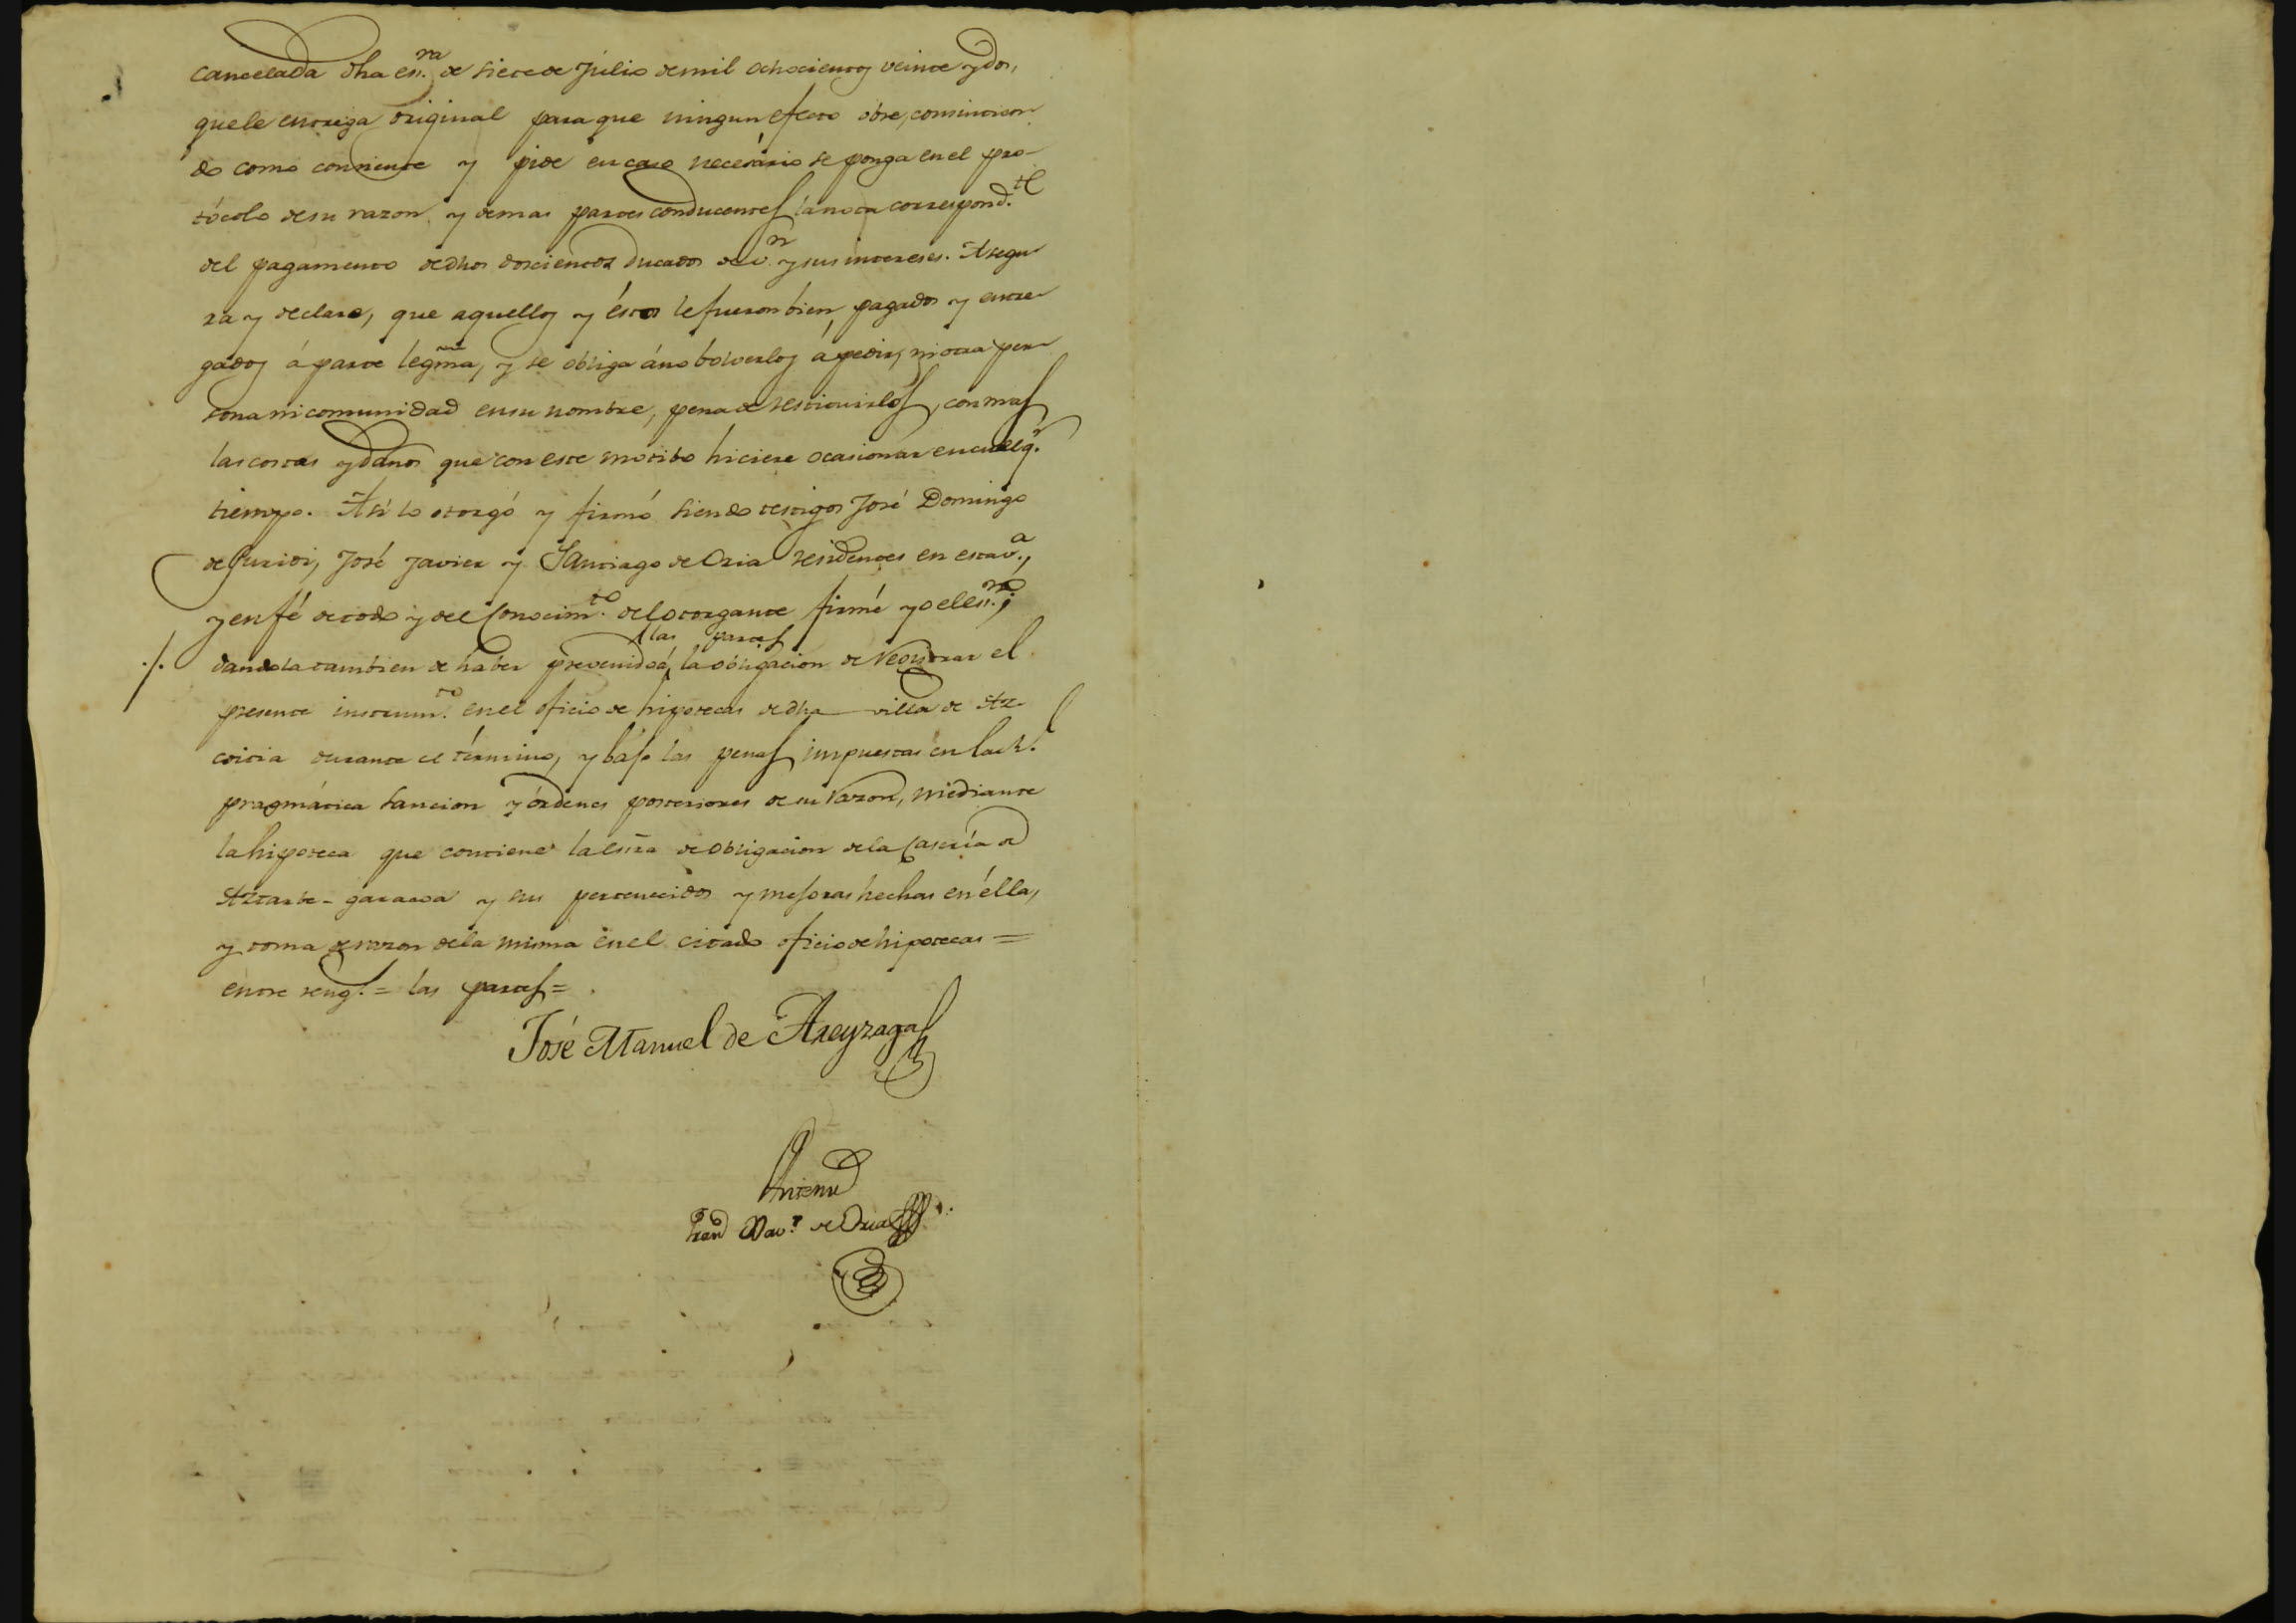 cancelada dha es.ra de siete de Júlio de mil ochocientos veinte y dos,
que le entrega original para que ningun efecto obre, consintien
do como consiente y pide en caso necesário se ponga en el pro-
tócolo de su razon y demas partes conducentes la nota correspond.te
del pagamento de dhos doscientos ducados de v.n y sus intereses. Asegu
ra y declara, que aquellos y éstos le fueron bien pagados y entre
gados á parte legma, y se obliga á no bolverlos á pedir, ni otra per
sona ni comunidad en su nombre, pena de restituirlos, con mas
las costas y daños que con este motibo hiciere ocasionar en cualq.r
tiempo. Así lo otorgó y firmó siendo testigos José Domingo
de Guridi, José Javier y Santiago de Oria residentes en esta v.a,
y en fé de todo y del conocim.to del otorgante firmé yo el es.no;
las partes
./. dandola tambien de haber prevenido á la obligacion de registrar el
presente instrum.to en el oficio de hipotecas de dha villa de Az-
coitia durante el término, y bajo las penas impuestas en la R.l
pragmática sancion y órdenes posteriores de su razon, mediante
la hipoteca que contiene la esra de obligacion de la Casería de
Aztarbe-garatea y sus pertenecidos y mejoras hechas en élla,
y toma de razon de la misma en el citado oficio de hipotecas =
entre reng.s = las partes =
José Manuel de Areyzaga
Antemi
Xav.r de Oria